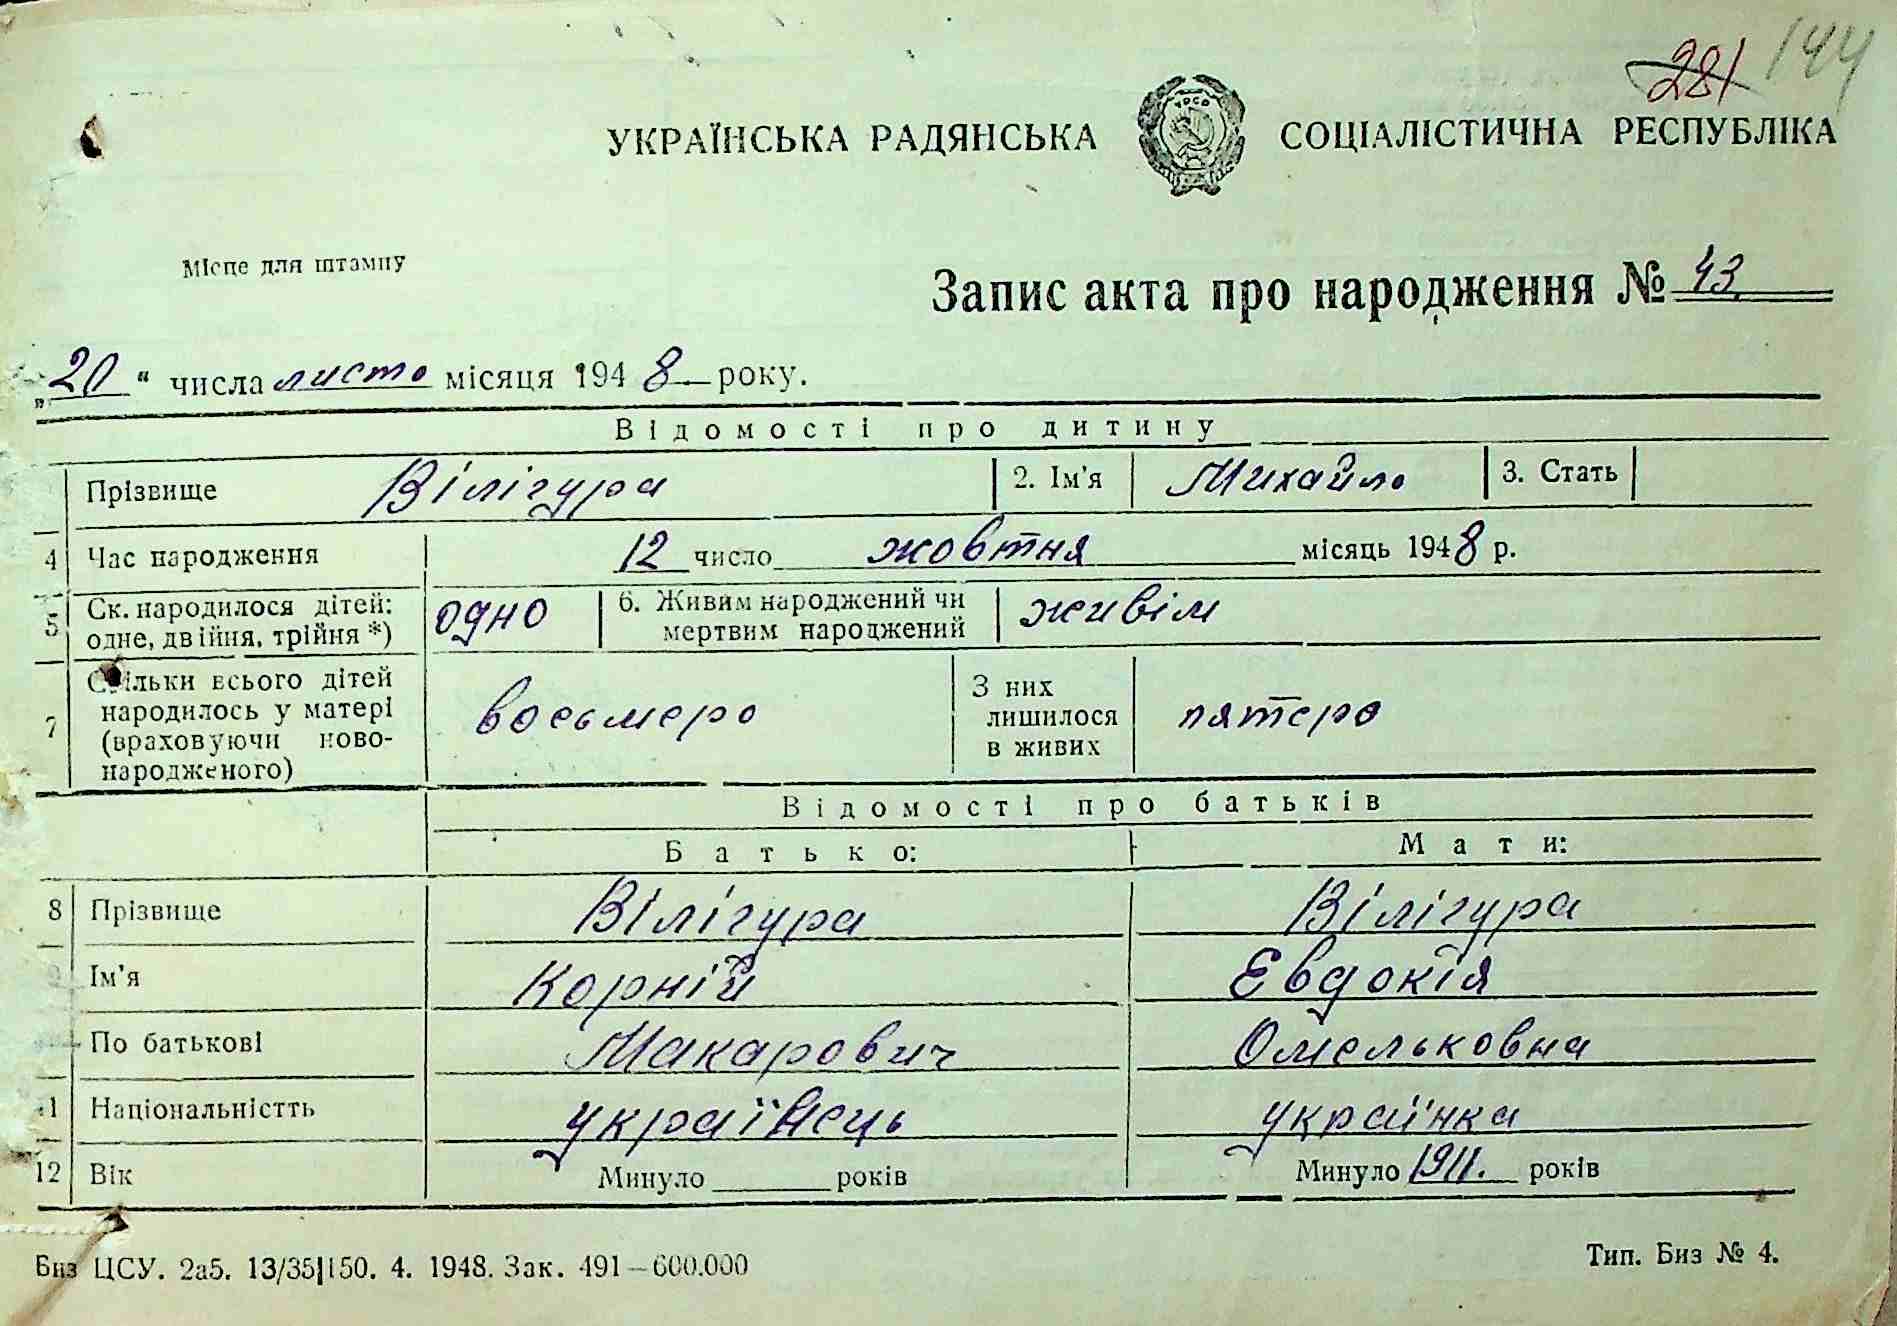 281 144
УКРАЇНСЬКА РАДЯНСЬКА СОЦІАЛІСТИЧНА РЕСПУБЛІКА
УРСР
Місце для штампу
Запис акта про народження № 43.
„20“ числа листо місяця 1948 року.
Відомості про дитину
Прізвище Вілігура 2. Ім'я Михайло 3. Стать
4 Час народження 12 число жовтня місяць 1948 р.
5 Ск. народилося дітей: одно 6. Живим народжений чи живім
одне, двійня, трійня *) мертвим народжений
7 Скільки всього дітей восьмеро З них пятеро
народилось у матері лишилося
(враховуючи ново- в живих
народженого)
Відомості про батьків
Батько: Мати:
8 Прізвище Вілігура Вілігура
Ім'я Корній Евдокія
По батькові Макарович Омельковна
1 Національністть українець українка
12 Вік Минуло ______ років Минуло 1911. років
Биз ЦСУ. 2а5. 13/35|150. 4. 1948. Зак. 491—600.000 Тип. Биз № 4.